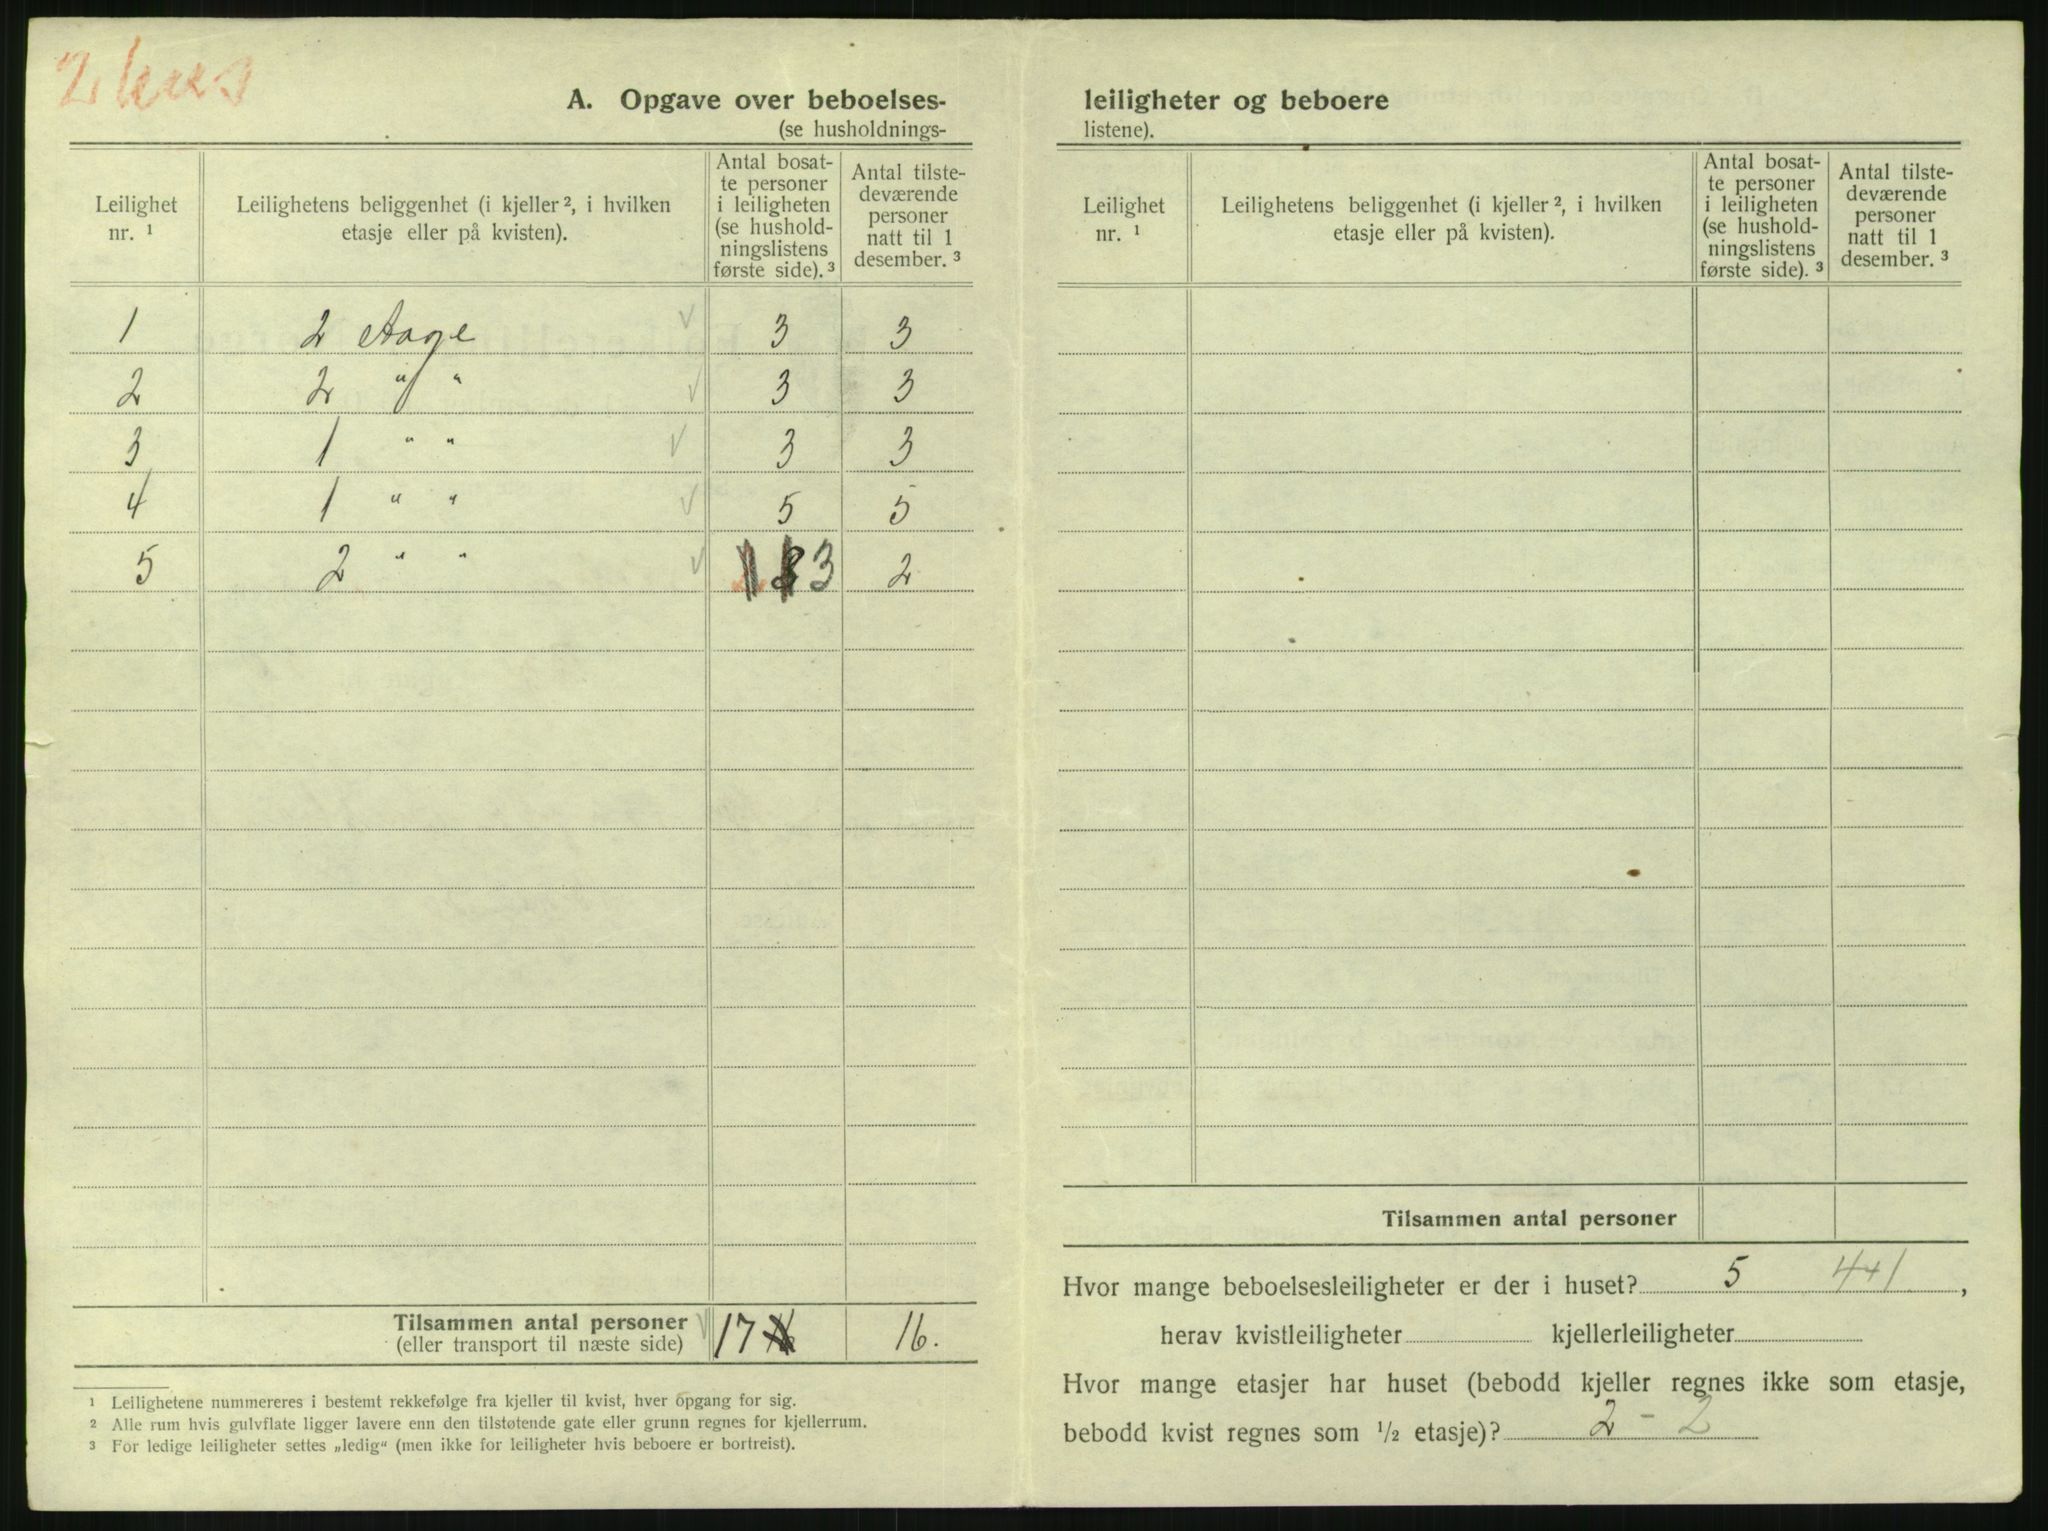 2 hus
A. Opgave over beboelses-
(se husholdnings-
Leilighet nr. ¹
Leilighetens beliggenhet (i kjeller ², i hvilken etasje eller på kvisten).
Antal bosatte personer i leiligheten (se husholdningslistens første side). ³
Antal tilstedeværende personer natt til 1 desember. ³
1 2 Etage 3 3
2 2 " " 3 3
3 1 " " 3 3
4 1 " " 5 5
5 2 " " 3 2
Tilsammen antal personer 17 16.
(eller transport til næste side)
¹ Leilighetene nummereres i bestemt rekkefølge fra kjeller til kvist, hver opgang for sig.
² Alle rum hvis gulvflate ligger lavere enn den tilstøtende gate eller grunn regnes for kjellerrum.
³ For ledige leiligheter settes „ledig“ (men ikke for leiligheter hvis beboere er bortreist).
leiligheter og beboere
listene).
Leilighet nr. ¹
Leilighetens beliggenhet (i kjeller ², i hvilken etasje eller på kvisten).
Antal bosatte personer i leiligheten (se husholdningslistens første side). ³
Antal tilstedeværende personer natt til 1 desember. ³
Tilsammen antal personer
Hvor mange beboelsesleiligheter er der i huset? 5 4+1,
herav kvistleiligheter kjellerleiligheter
Hvor mange etasjer har huset (bebodd kjeller regnes ikke som etasje,
bebodd kvist regnes som ½ etasje)? 2 - 2